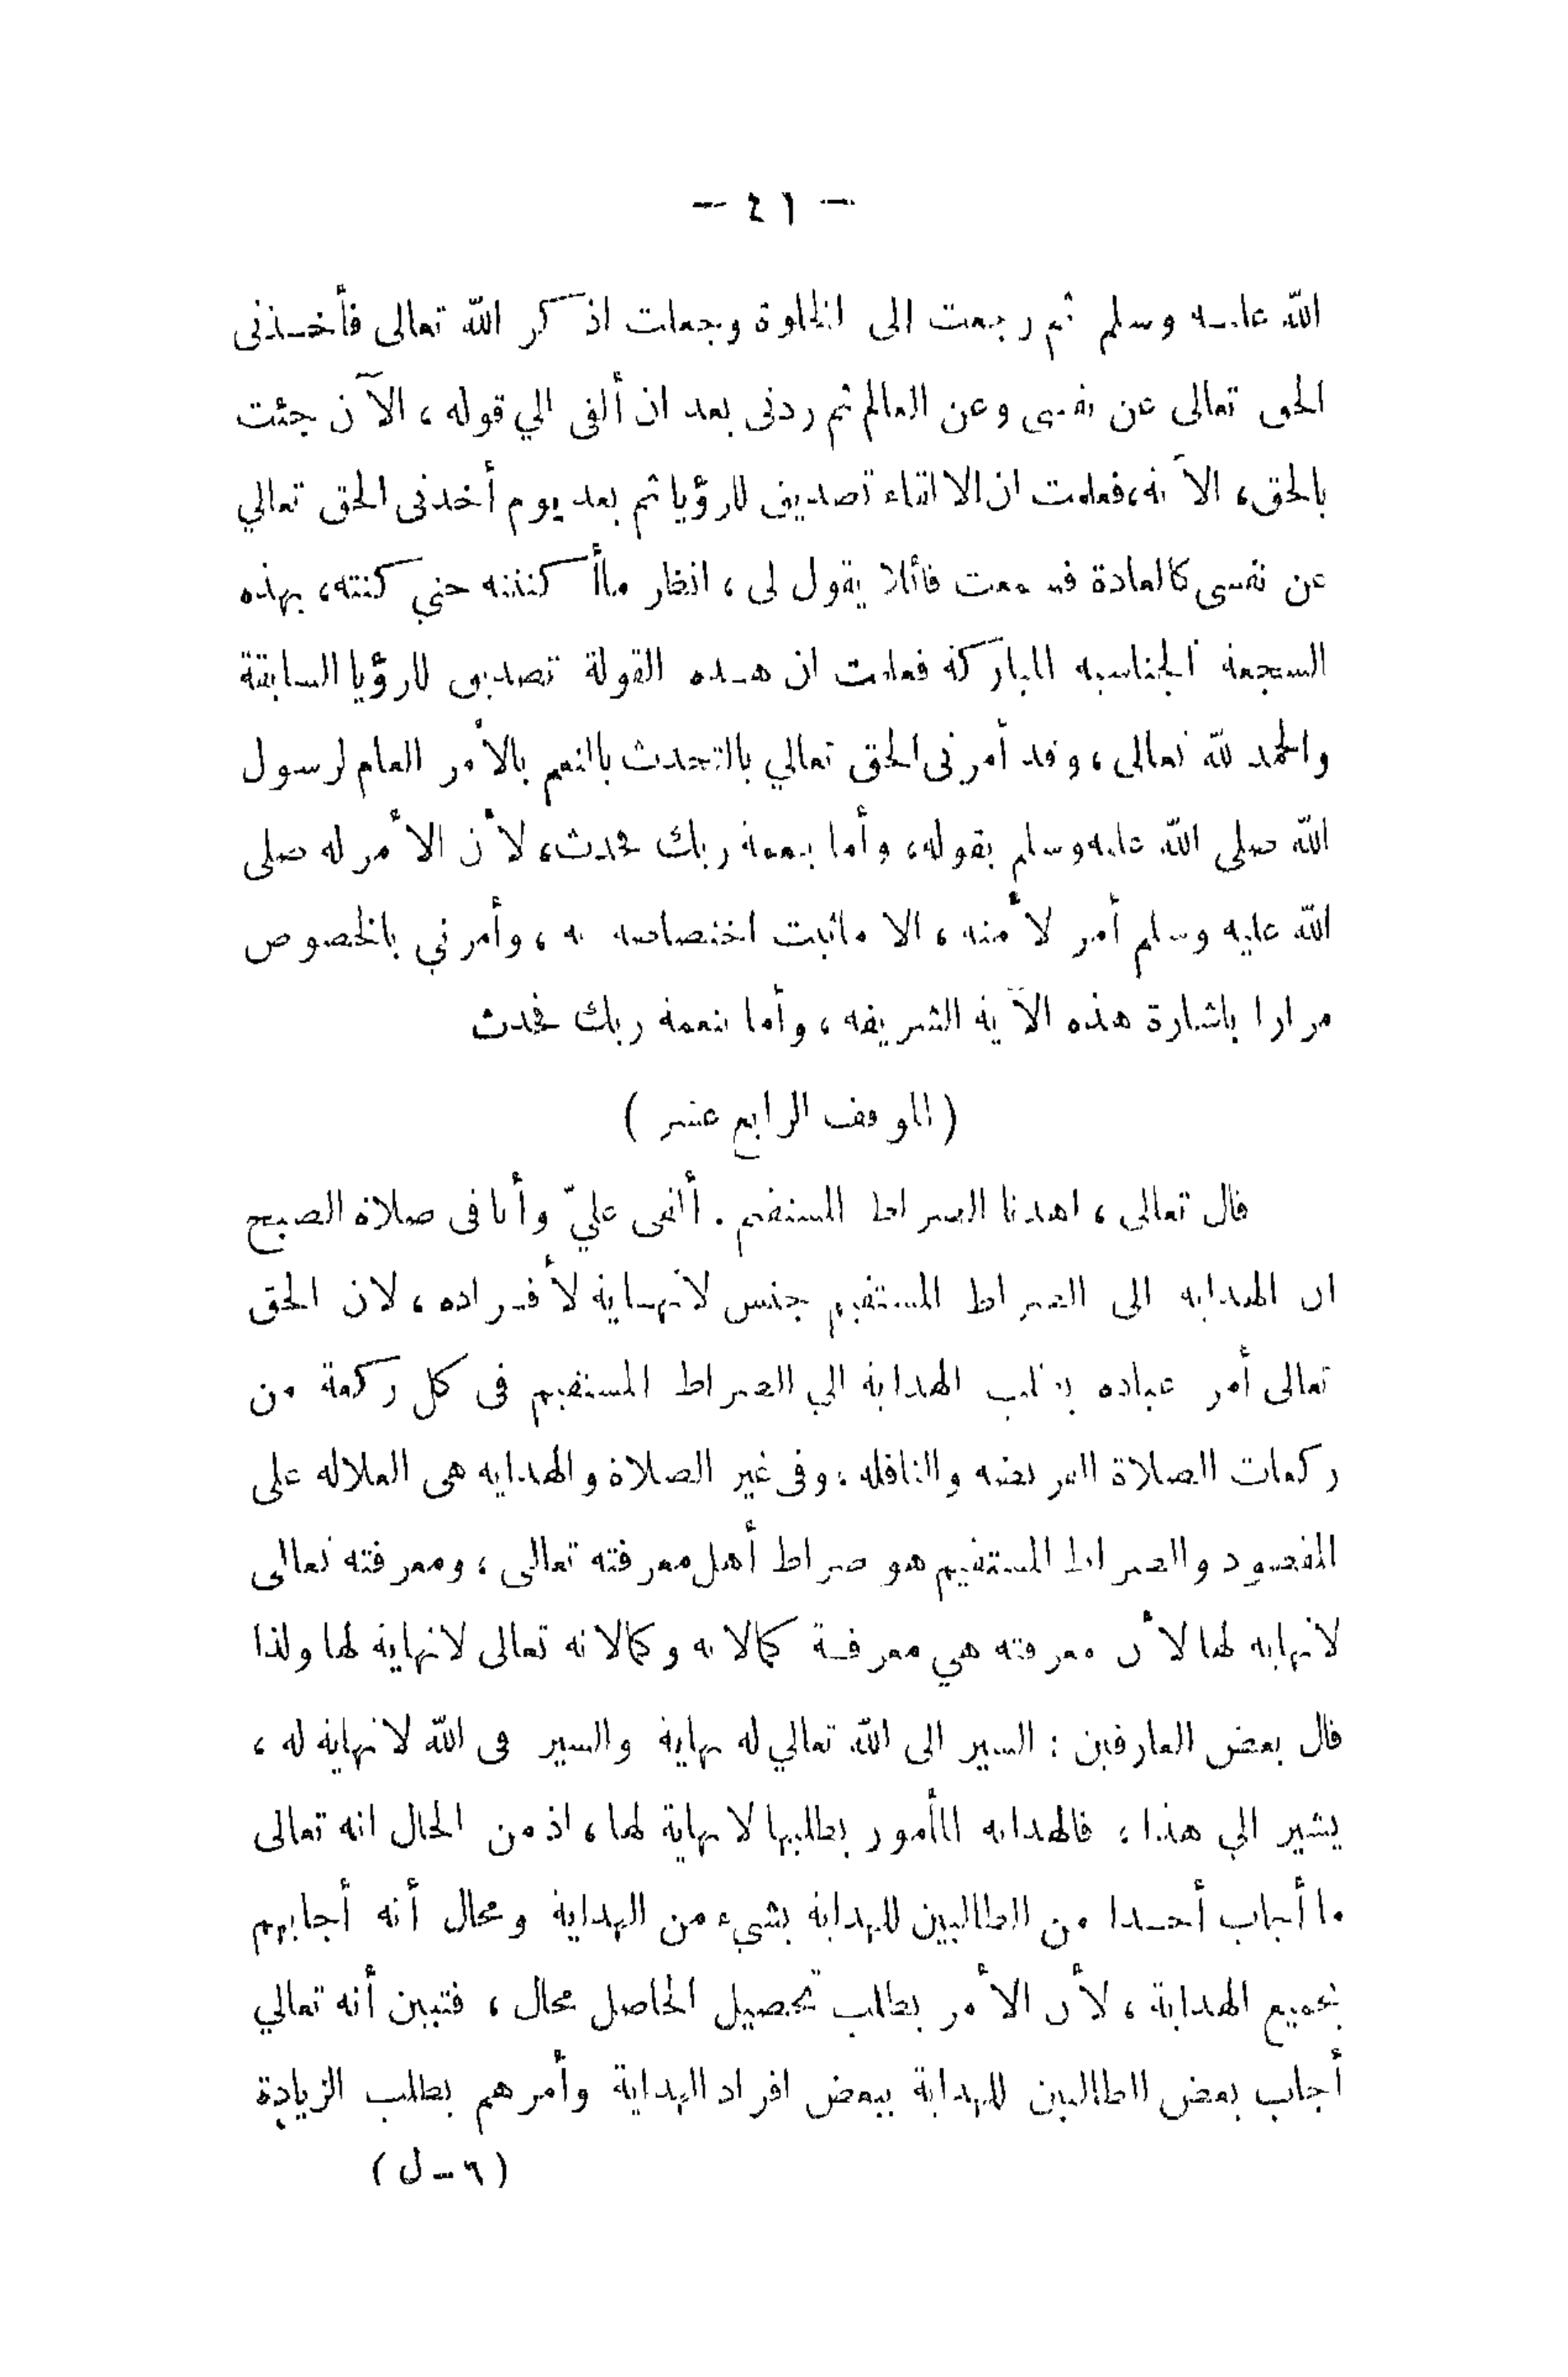 — ٤١ —
الله عليـه وسلم ثم رجعت الى الخلوة وجعلت اذكر الله تعالى فأخـذنى
الحق تعالى عن نفسى وعن العالم ثم ردنى بعد ان ألقى الي قوله ، الآن جئت
بالحق، الآية،فعلمت ان الالقاء تصديق للرؤيا ثم بعد يوم أخذنى الحق تعالي
عن نفسى كالعادة فسمعت قائلا يقول لى ، انظر ماأكننته حتي كنته، بهذه
السجعة الجناسية المباركة فعلمت ان هـذه القولة تصديق للرؤيا السابقة
والحمد لله تعالى ، وقد أمرنى الحق تعالي بالتحدث بالنعم بالأمر العام لرسول
الله صلى الله عليه وسلم بقوله، وأما بنعمة ربك فحدث، لأن الأمر له صلى
الله عليه وسلم أمر لأمته ، الا ماثبت اختصاصه به ، وأمرني بالخصوص
مرارا باشارة هذه الآية الشريفة ، وأما بنعمة ربك فحدث
( الموقف الرابع عشر )
قال تعالى ، اهدنا الصراط المستقيم . ألقى عليّ وأنا فى صلاة الصبح
ان الهداية الى الصراط المستقيم جنس لانهـاية لأفـراده ، لان الحق
تعالى أمر عباده بطلب الهداية الي الصراط المستقيم فى كل ركعة من
ركعات الصلاة الفريضة والنافلة ، وفى غير الصلاة والهداية هى الدلالة على
المقصود والصراط المستقيم هو صراط أهل معرفته تعالى ، ومعرفته تعالى
لانهاية لها لأن معرفته هي معرفـة كمالاته وكمالاته تعالى لانهاية لها ولذا
قال بعض العارفين : السير الى الله تعالي له نهاية والسير فى الله لانهاية له ،
يشير الي هذا ، فالهداية المأمور بطلبها لا نهاية لها ، اذ من المحال انه تعالى
ما أجاب أحـدا من الطالبين للهداية بشيء من الهداية ومحال أنه أجابهم
بجميع الهداية ، لأن الأمر بطلب تحصيل الحاصل محال ، فتبين أنه تعالي
أجاب بعض الطالبين للهداية ببعض افراد الهداية وأمرهم بطلب الزيادة
( ٦ - ل )